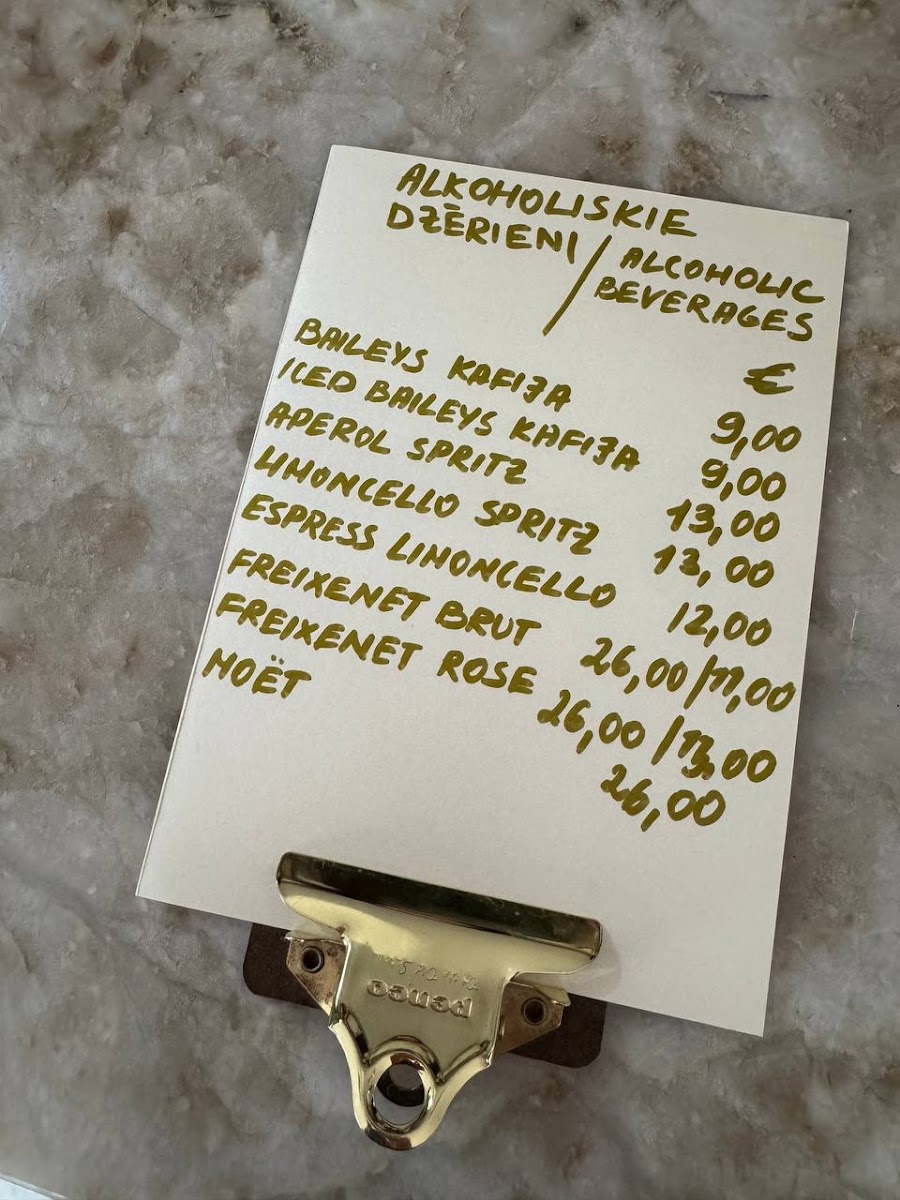 ALKOHOLISKIE
DZĒRIENI / ALCOHOLIC
BEVERAGES
€
BAILEYS KAFIJA 9,00
ICED BAILEYS KAFIJA 9,00
APEROL SPRITZ 13,00
LIMONCELLO SPRITZ 13,00
ESPRESS LIMONCELLO 12,00
FREIXENET BRUT 26,00/11,00
FREIXENET ROSE 26,00/13,00
MOËT 26,00
penco